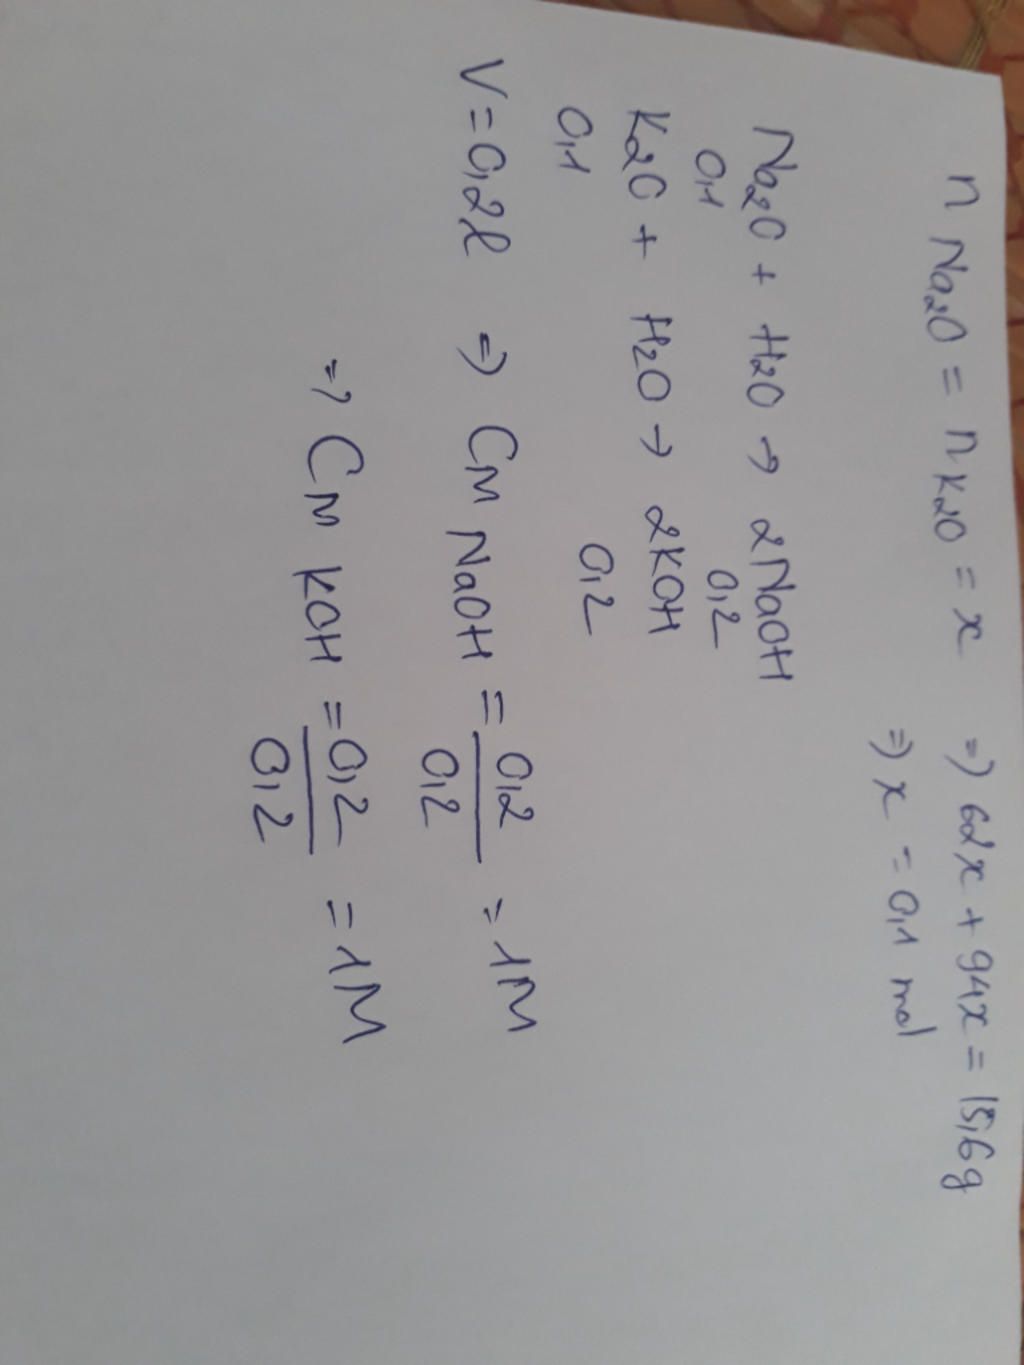 n Na2O = n K2O = x => 62x + 94x = 15,6g
=> x = 0,1 mol
Na2O + H2O → 2NaOH
0,1 0,2
K2O + H2O → 2KOH
0,1 0,2
V = 0,2l => CM NaOH = 0,2 / 0,2 = 1M
=> CM KOH = 0,2 / 0,2 = 1M